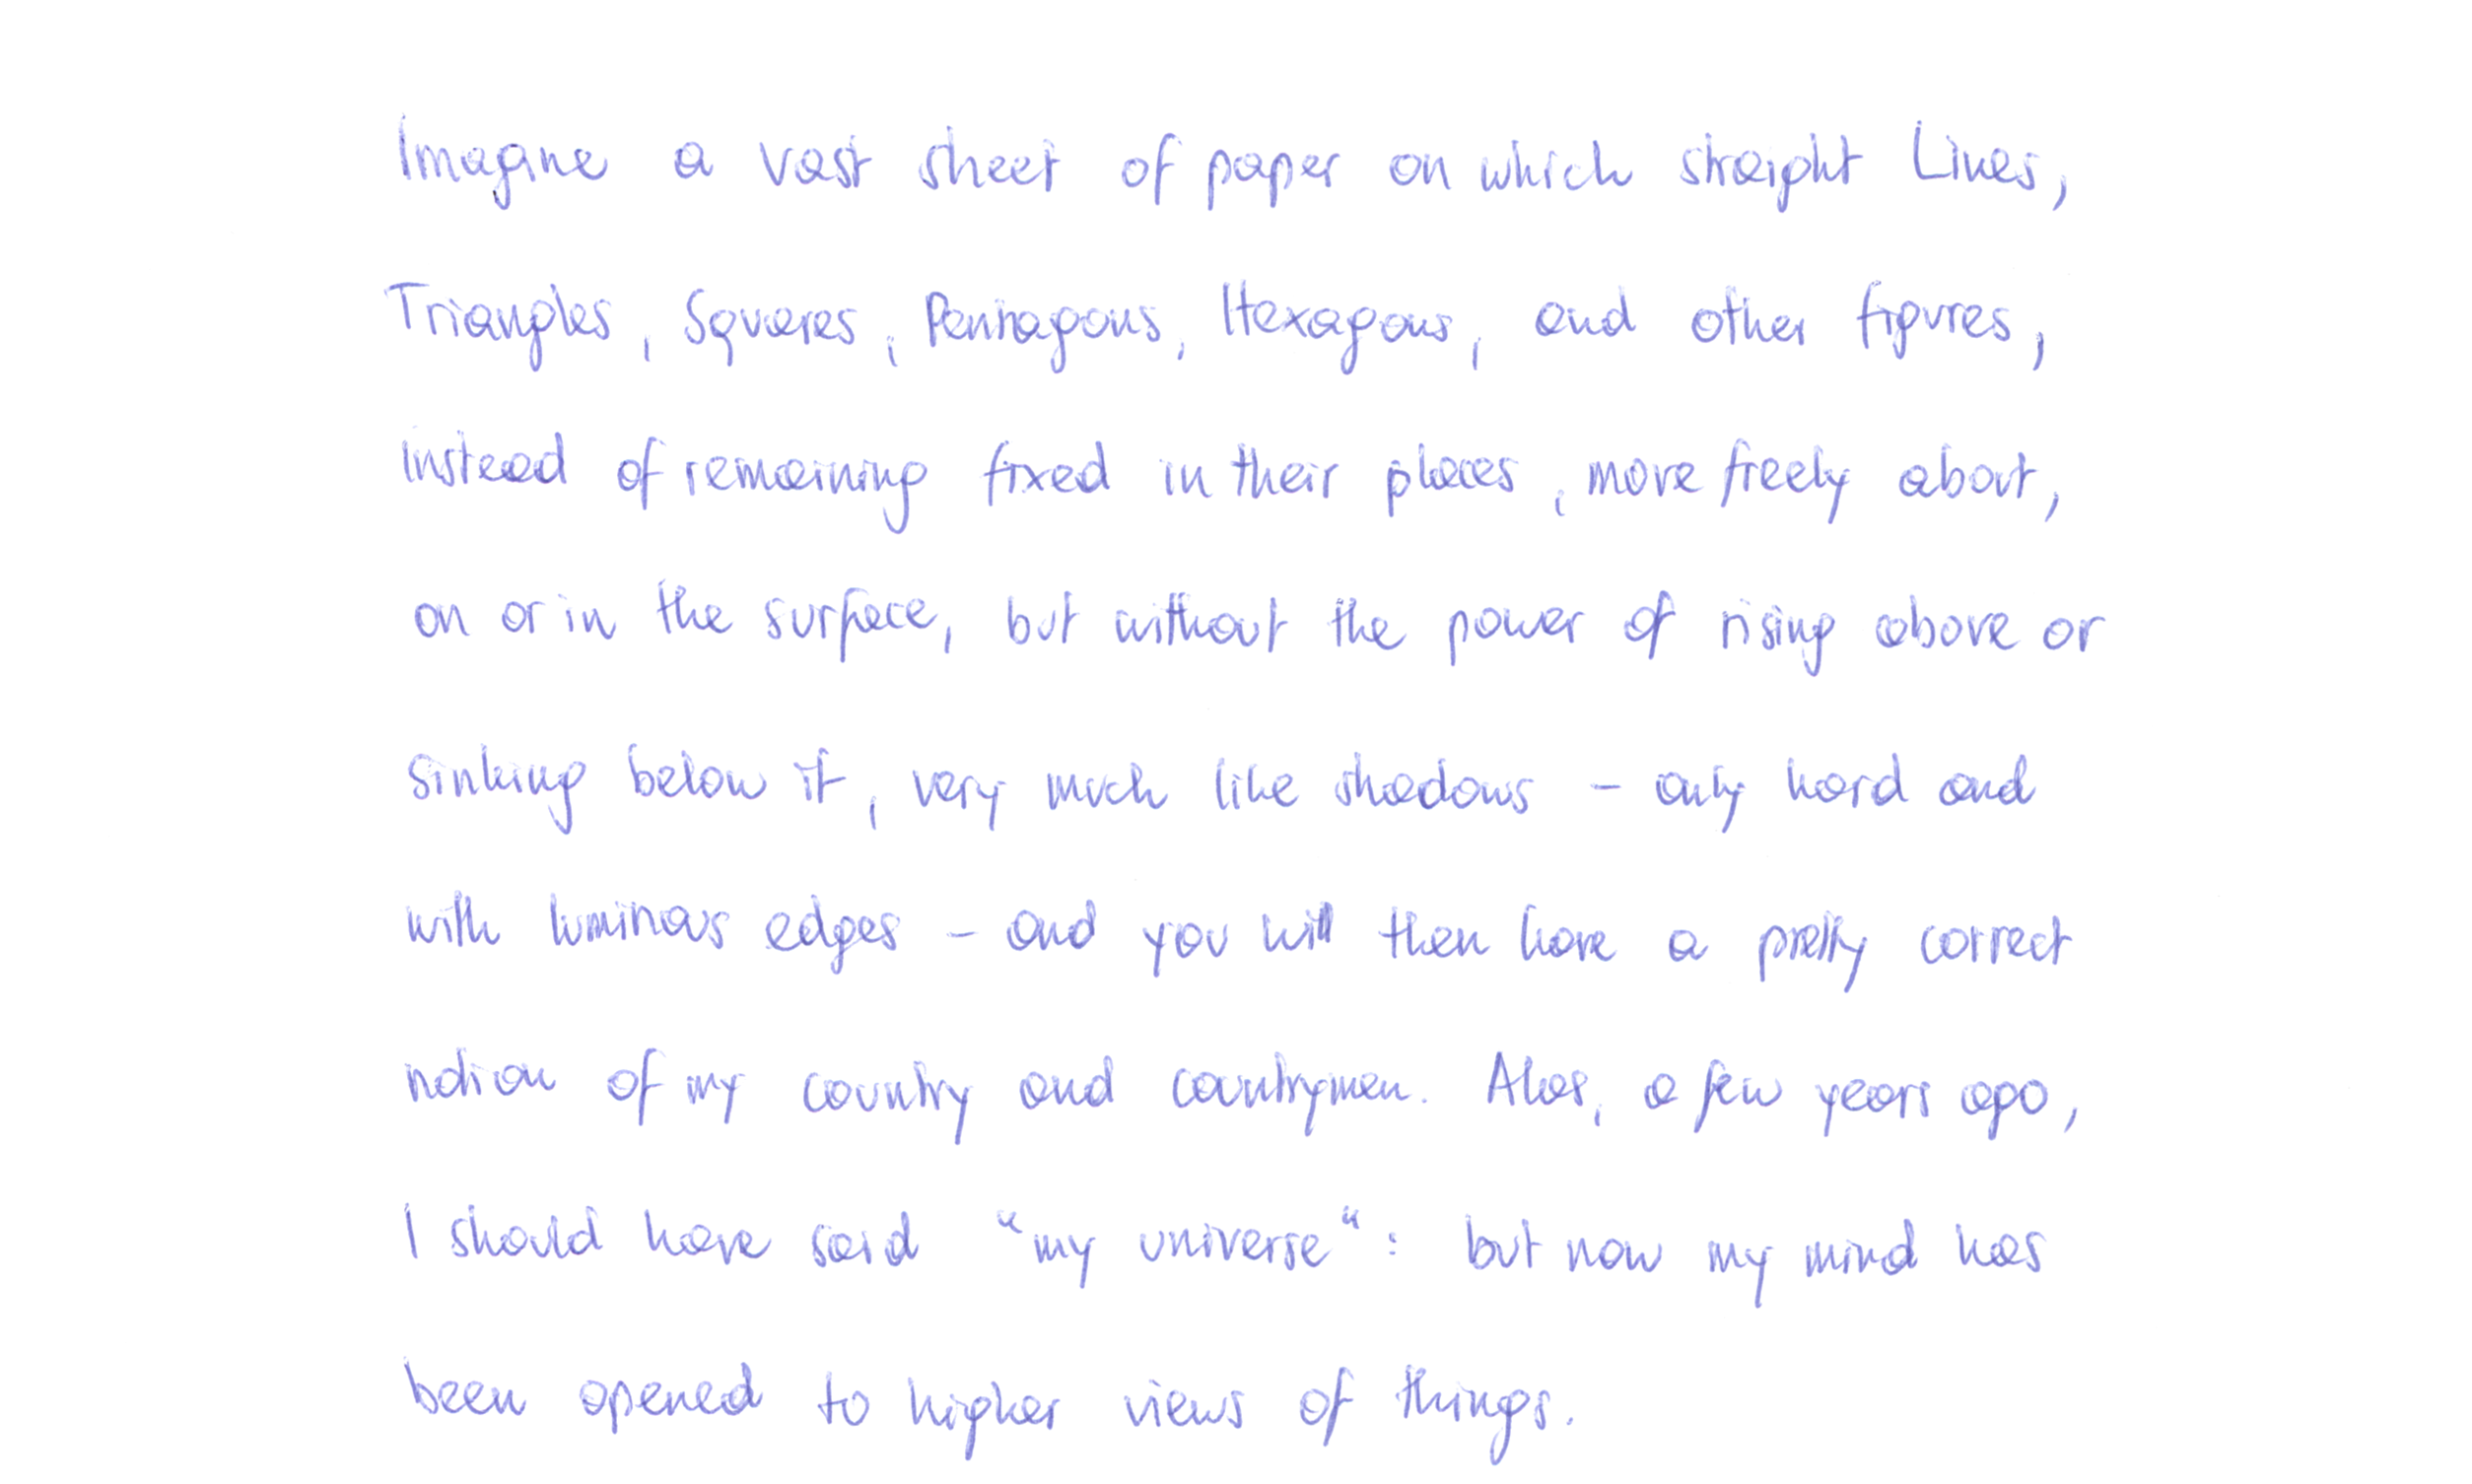 Imagine a vast sheet of paper on which straight Lines,
Triangles, Squares, Pentagons, Hexagons, and other figures,
instead of remaining fixed in their places, move freely about,
on or in the surface, but without the power of rising above or
sinking below it, very much like shadows - only hard and
with luminous edges - and you will then have a pretty correct
notion of my country and countrymen. Alas, a few years ago,
I should have said “my universe“: but now my mind has
been opened to higher views of things.